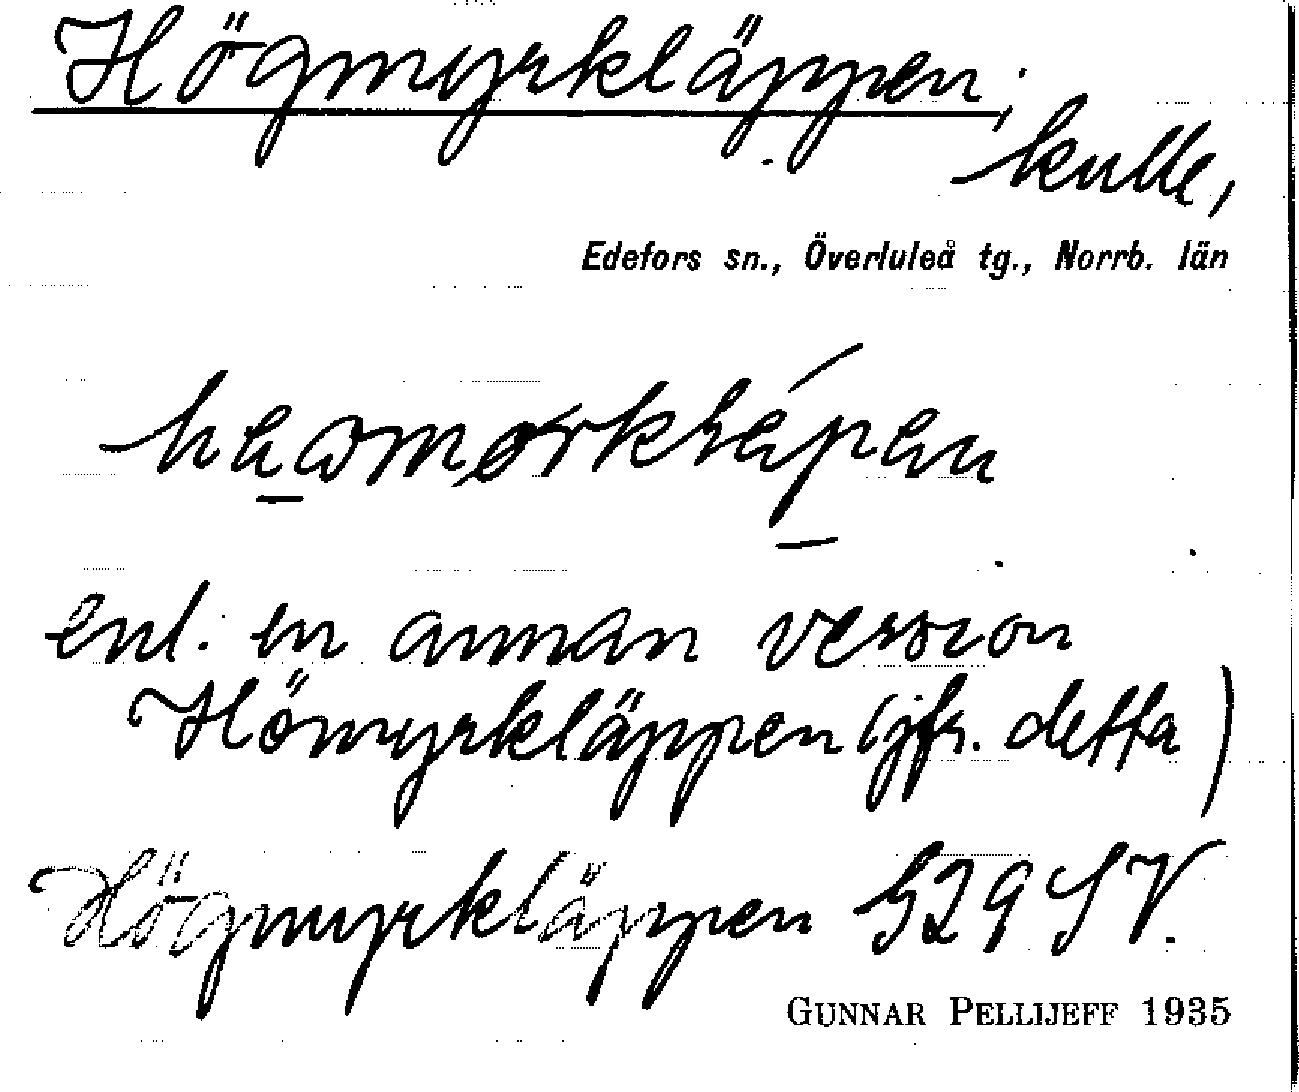 Högmyrkläppen,
kulle,
Edefors sn., Överluleå tg., Norrb. län
enl. en annan version
Hömyrkläppen (jfr. detta)
Högmyrkläppen 529 SV.
GUNNAR PELLIJEFF 1935